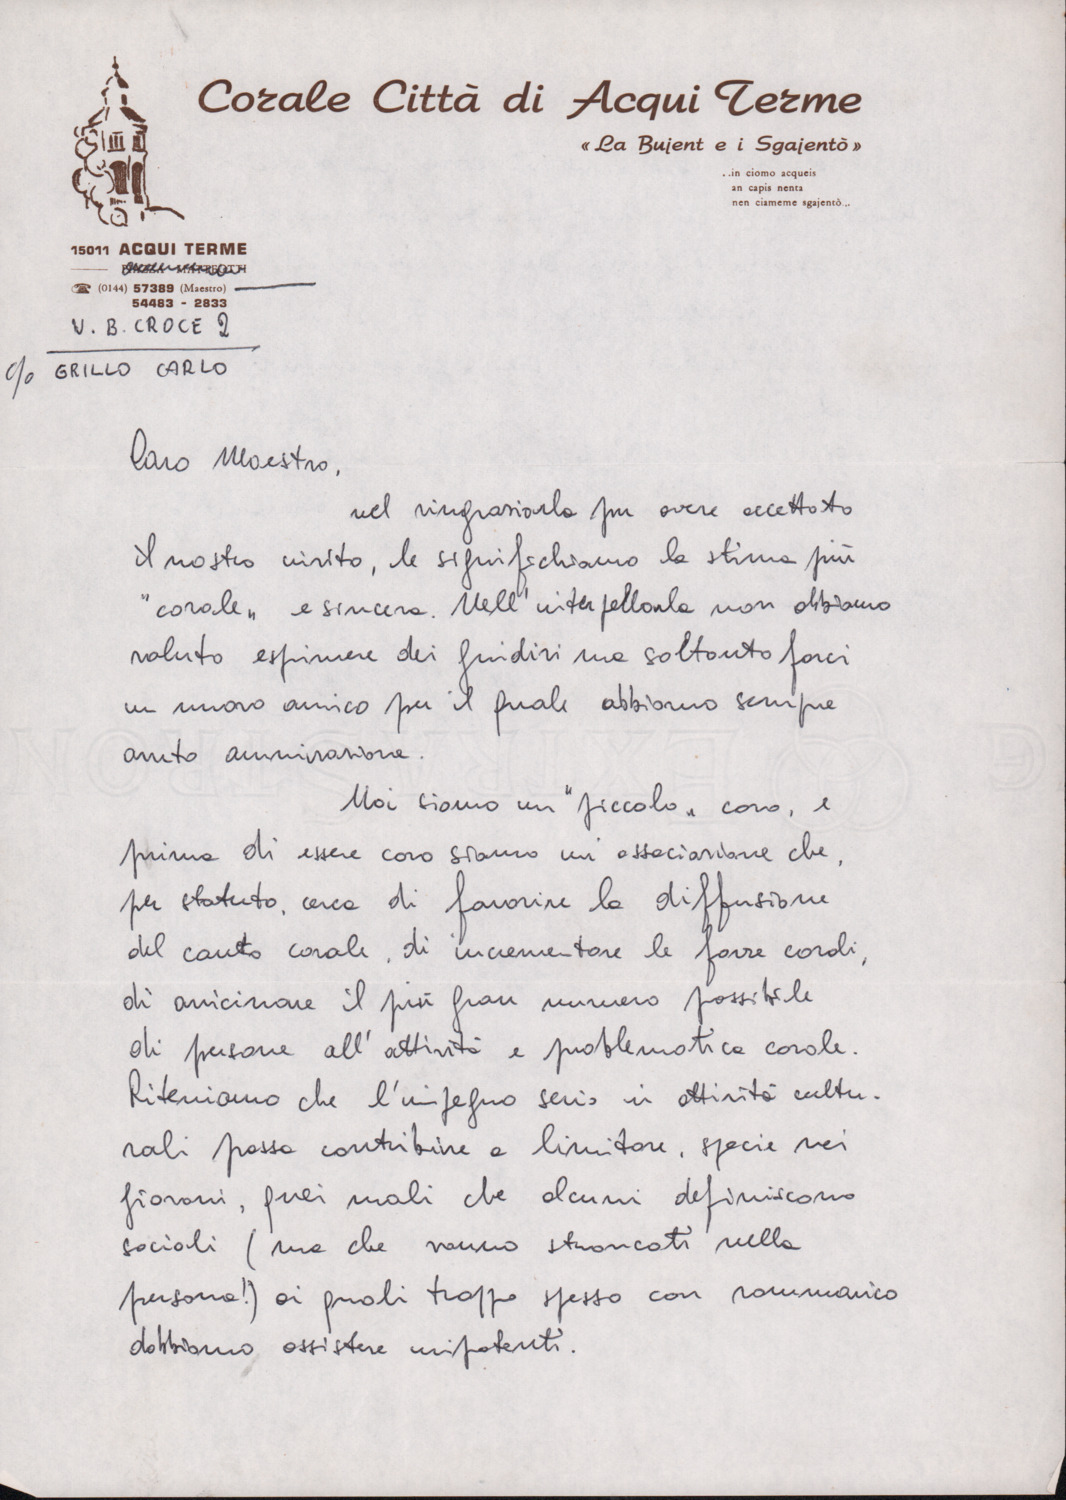 Corale Città di Acqui Terme
« La Bujent e i Sgajentò »
..in ciomo acqueis
an capis nenta
nen ciameme sgajentò...
15011 ACQUI TERME
(0144) 57389 (Maestro)
54483 - 2833
V. B. CROCE 2
c/o GRILLO CARLO
Caro Maestro,
nel ringraziarla per avere accettato
il nostro invito, le significhiamo la stima più
"corale" e sincera. Nell'interpellarla non abbiamo
voluto esprimere dei giudizi ma soltanto farci
un nuovo amico per il quale abbiamo sempre
avuto ammirazione.
Noi siamo un "piccolo" coro, e
prima di essere coro siamo un'associazione che,
per statuto, cerca di favorire la diffusione
del canto corale, di incrementare le forze corali,
di avvicinare il più gran numero possibile
di persone all'attività e problematica corale.
Riteniamo che l'impegno serio in attività cultu-
rali possa contribuire a limitare, specie nei
giovani, quei mali che alcuni definiscono
sociali (ma che vanno stroncati nella
persona!) ai quali troppo spesso con rammarico
dobbiamo assistere impotenti.